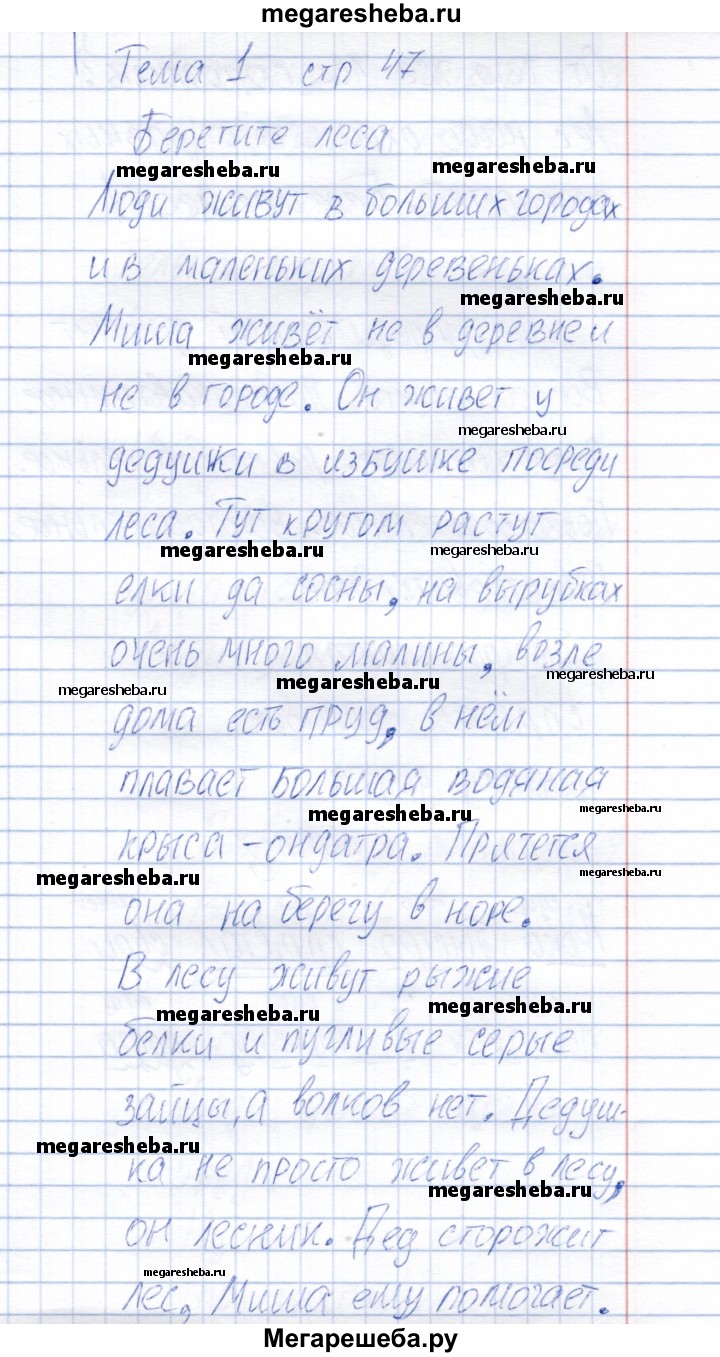 megaresheba.ru
Тема 1 стр 47
Берегите леса
megaresheba.ru megaresheba.ru
Люди живут в больших городах
и в маленьких деревеньках.
megaresheba.ru
Миша живёт не в деревне и
megaresheba.ru
не в городе. Он живет у
megaresheba.ru
дедушки в избушке посреди
леса. Тут кругом растут
megaresheba.ru megaresheba.ru
елки да сосны, на вырубках
очень много малины, возле
megaresheba.ru megaresheba.ru megaresheba.ru
дома есть пруд, в нём
плавает большая водяная
megaresheba.ru megaresheba.ru
крыса - ондатра. Прячется
megaresheba.ru megaresheba.ru
она на берегу в норе.
В лесу живут рыжие
megaresheba.ru megaresheba.ru
белки и пугливые серые
зайцы, а волков нет. Дедуш-
megaresheba.ru
ка не просто живет в лесу,
megaresheba.ru
он лесник. Дед сторожит
megaresheba.ru
лес, Миша ему помогает.
Мегарешеба.ру